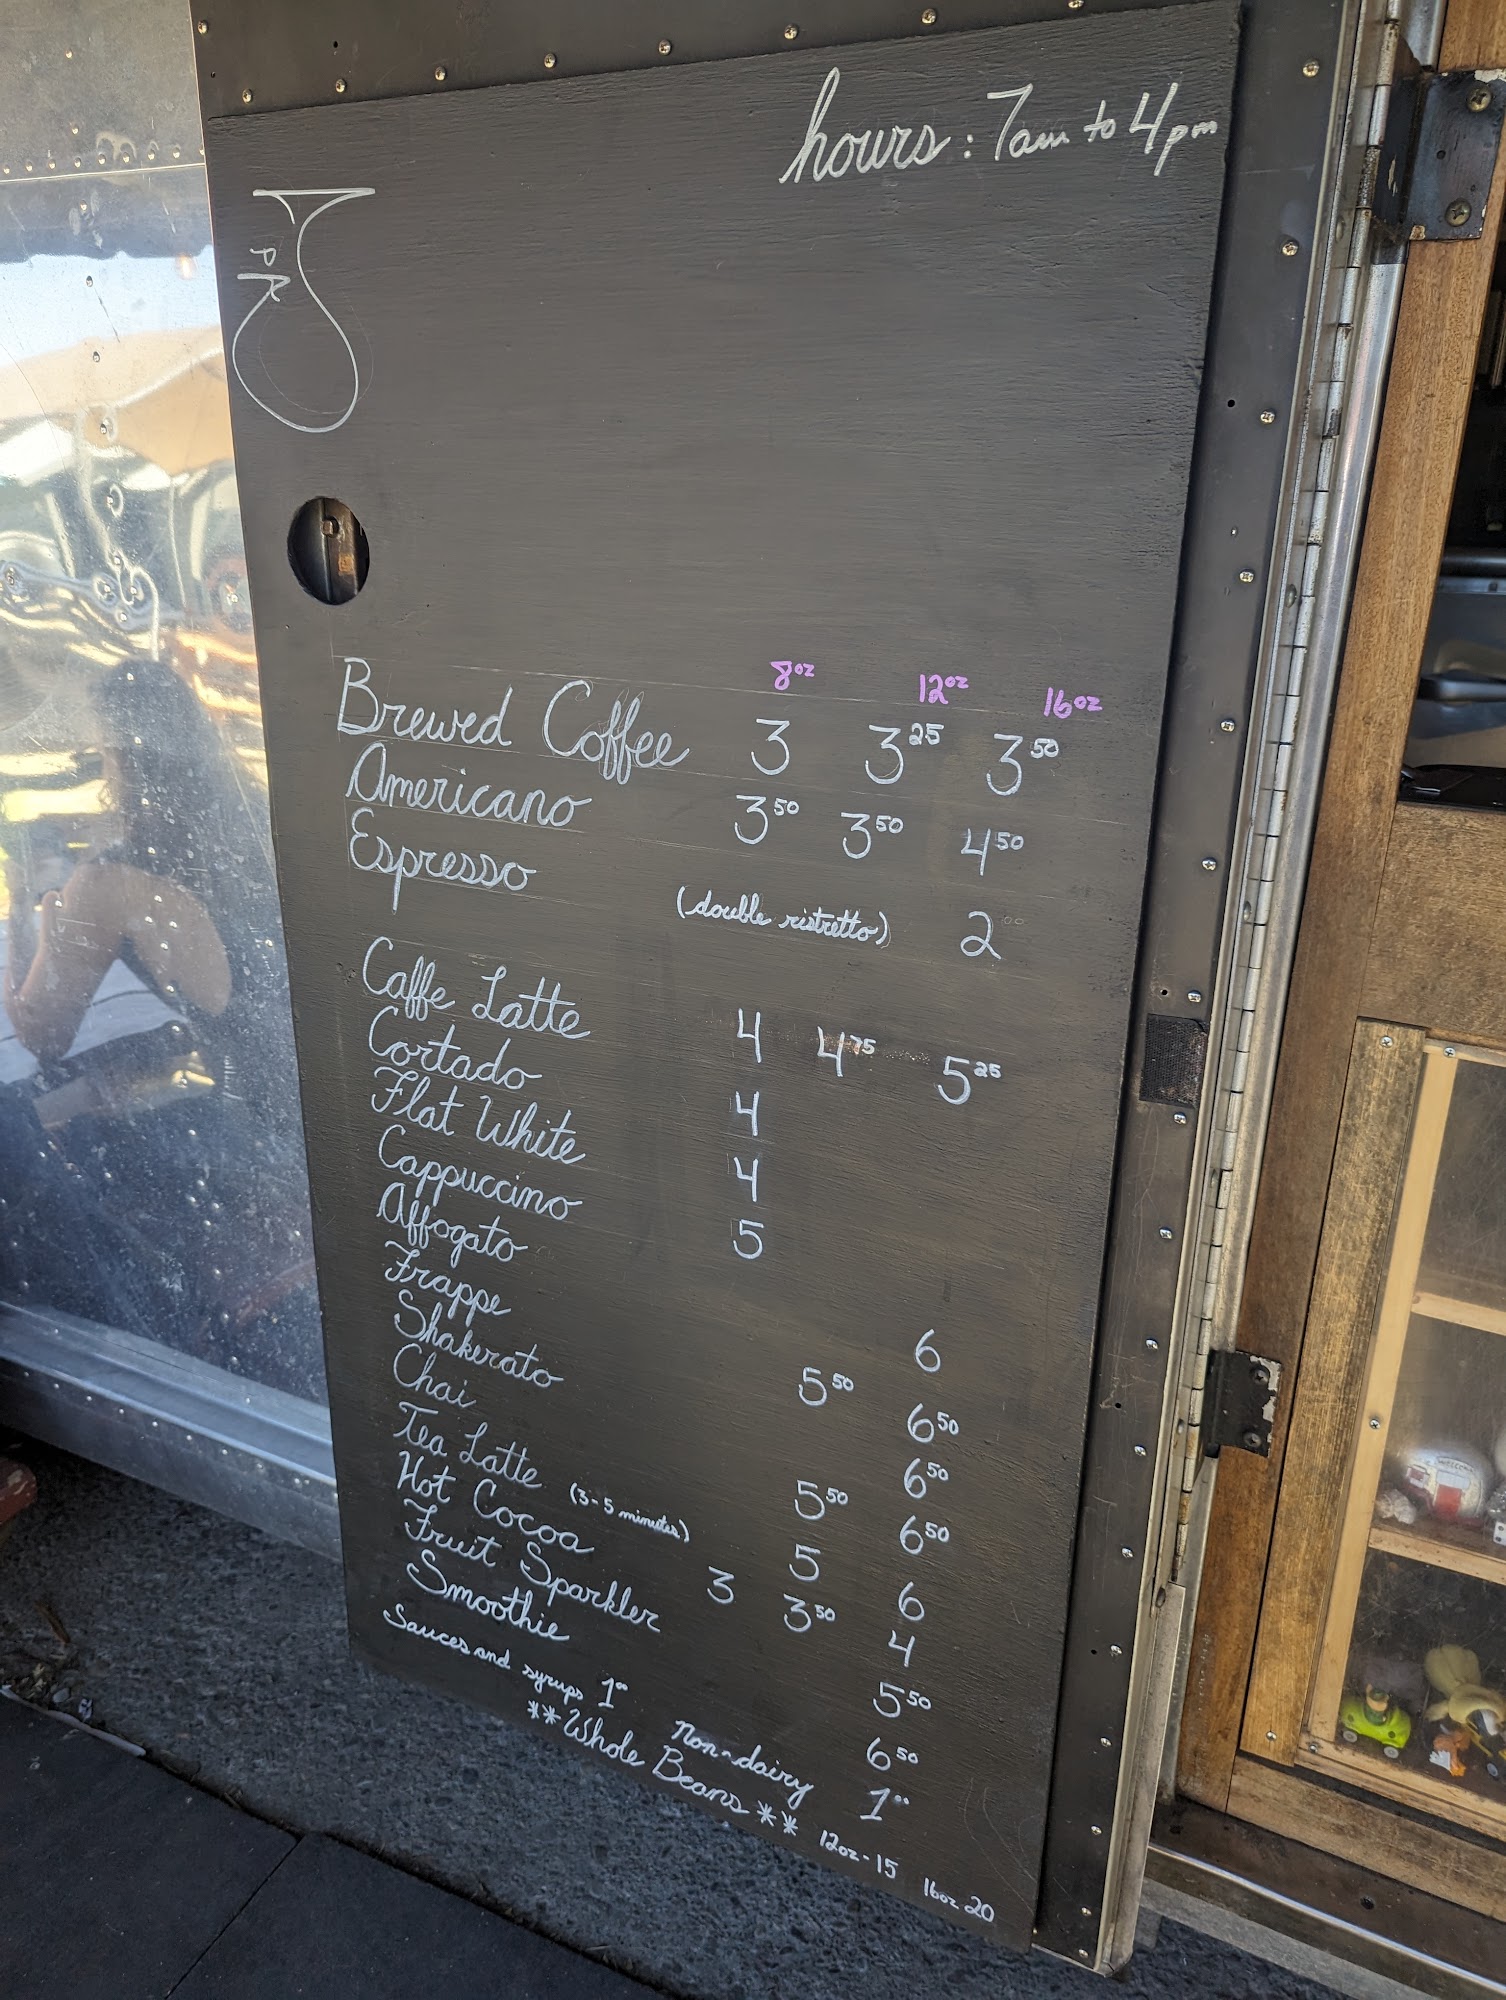 hours: 7am to 4pm
PR
8oz 12oz 16oz
Brewed Coffee 3 3 25 3 50
Americano 3 50 3 50 4 50
Espresso (double ristretto) 2
Caffe Latte 4 4 75 5 25
Cortado 4
Flat White 4
Cappuccino 5
Affogato 6
Frappe 5 50 6 50
Shakerato 6 50
Chai 5 50 6 50
Tea Latte (3-5 minutes) 5 6
Hot Cocoa 3 3 50 4
Fruit Sparkler 5 50
Smoothie 6 50
Sauces and syrups 1 00 Non-dairy 1 00
**Whole Beans** 12oz-15 16oz-20